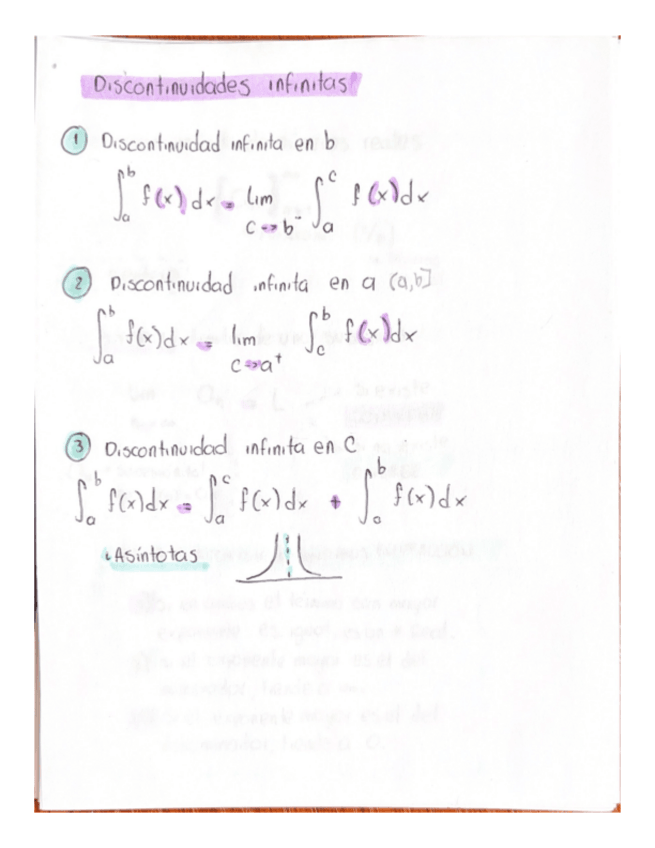 Discontinuidades infinitas
1 Discontinuidad infinita en b
∫_a^b f(x) dx = lim_{c→b⁻} ∫_a^c f(x)dx
2 Discontinuidad infinita en a (a,b]
∫_a^b f(x)dx = lim_{c→a⁺} ∫_c^b f(x)dx
3 Discontinuidad infinita en C
∫_a^b f(x)dx = ∫_a^c f(x)dx + ∫_a^b f(x)dx
Asíntotas